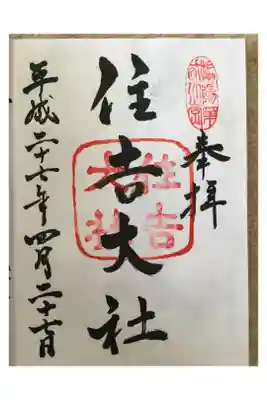 奉拝
住吉大社
平成二十七年四月二十七日
住吉
大社